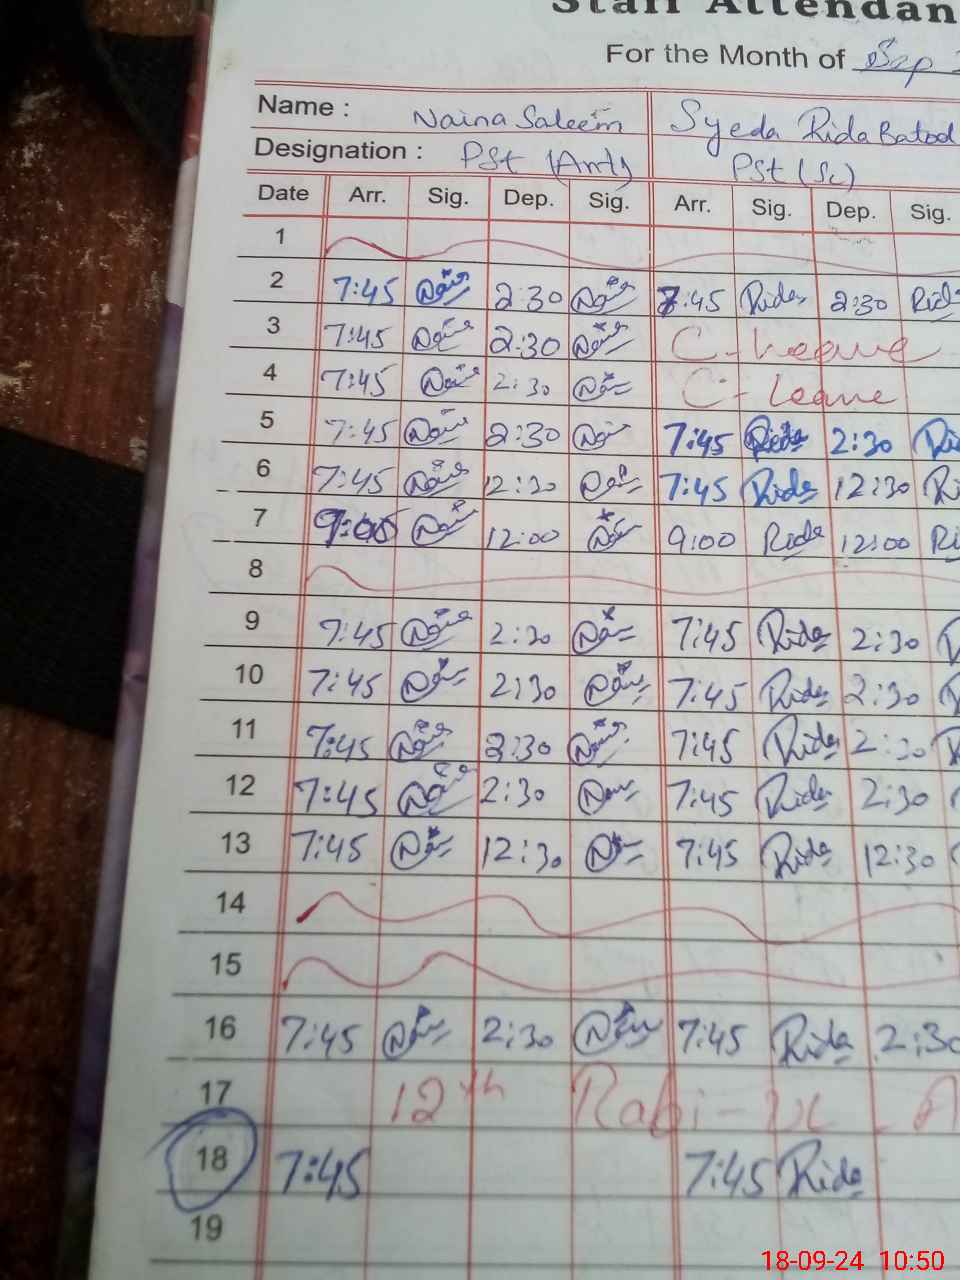 Staff Attendan
For the Month of Sep
Name : Naina Saleem Syeda Rida Batool
Designation : PSt (Art) PSt (Sc)
Date Arr. Sig. Dep. Sig. Arr. Sig. Dep. Sig.
1
2 7:45 2:30 7:45 Rida 2:30 Rida
3 7:45 2:30 C-Leave
4 7:45 2:30 C-Leave
5 7:45 2:30 7:45 Rida 2:30 Ri
6 7:45 12:30 7:45 Rida 12:30 Ri
7 9:00 12:00 9:00 Rida 12:00 Ri
8
9 7:45 2:30 7:45 Rida 2:30
10 7:45 2:30 7:45 Rida 2:30
11 7:45 2:30 7:45 Rida 2:30
12 7:45 2:30 7:45 Rida 2:30
13 7:45 12:30 7:45 Rida 12:30
14
15
16 7:45 2:30 7:45 Rida 2:30
17 12th Rabi-ul-A
18 7:45 7:45 Rida
19
18-09-24 10:50